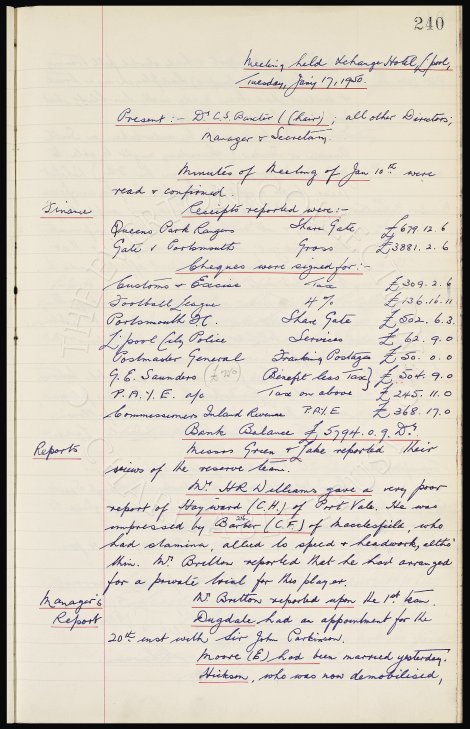 240
Meeting held Exchange Hotel, L'pool,
Tuesday, Jan'y 17, 1950.
Present :- Dr C.S. Baxter (Chair) ; all other Directors;
Manager & Secretary.
Minutes of Meeting of Jan 10th were
read & confirmed.
Finance
Receipts reported were:-
Queens Park Rangers Share Gate £679.12.6
Gate v Portsmouth Gross £3881.2.6
Cheques were signed for :-
Customs & Excise Tax £309.2.6
Football League 4% £136.16.11
Portsmouth F.C. Share Gate £502.6.3
L'pool City Police Services £62.9.0
Postmaster General Franking Postages £50.0.0
G.E. Saunders (£750) Benefit less Tax} £504.9.0
P.A.Y.E. a/c Tax on above £245.11.0
Commissioners Inland Revenue P.A.Y.E £368.17.0
Bank Balance £5794.0.9. Dr.
Reports
Messrs Green & Jake reported their
views of the reserve team.
Mr. H.R Williams gave a very poor
report of Hayward (C.H.) of Port Vale. He was
impressed by Barber (C.F.) of Macclesfield, who
had stamina, allied to speed & headwork, altho'
thin. Mr Britton reported that he had arranged
for a private trial for this player.
Manager's
Report
Mr Britton reported upon the 1st team.
Dugdale had an appointment for the
20th inst with Sir John Parkinson.
Moore (E) had been married yesterday.
Hickson, who was now demobilised,